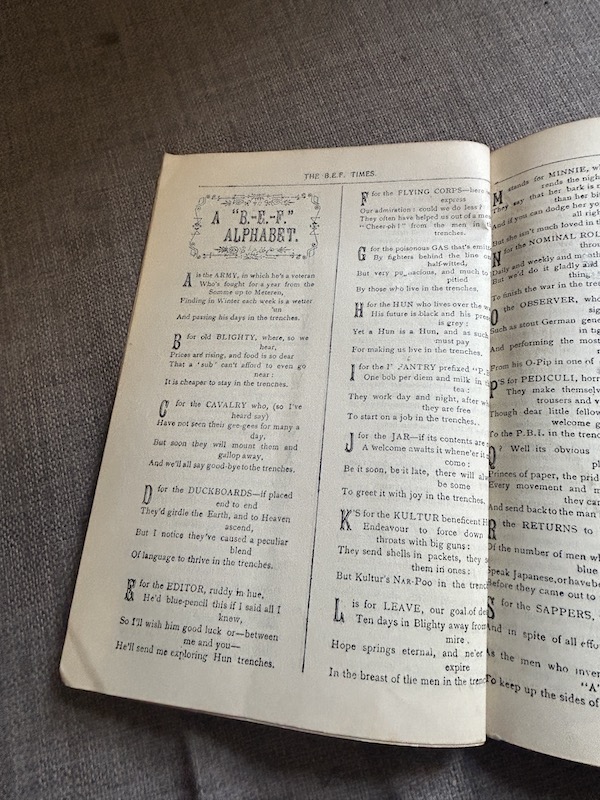 THE B.E.F. TIMES.
A "B.-E.-F."
ALPHABET.
A is the ARMY, in which he's a veteran
Who's fought for a year from the
Somme up to Meteren,
Finding in Winter each week is a wetter
'un
And passing his days in the trenches.
B for old BLIGHTY, where, so we
hear,
Prices are rising, and food is so dear
That a 'sub' can't afford to even go
near:
It is cheaper to stay in the trenches.
C for the CAVALRY who, (so I've
heard say)
Have not seen their gee-gees for many a
day,
But soon they will mount them and
gallop away,
And we'll all say good-bye to the trenches.
D for the DUCKBOARDS—if placed
end to end
They'd girdle the Earth, and to Heaven
ascend,
But I notice they've caused a peculiar
blend
Of language to thrive in the trenches.
E for the EDITOR, ruddy in hue,
He'd blue-pencil this if I said all I
knew,
So I'll wish him good luck or—between
me and you—
He'll send me exploring Hun trenches.
F for the FLYING CORPS—here
express
Our admiration: could we do less
They often have helped us out of a
"Cheer-oh!" from the men in
trenches.
G for the poisonous GAS that's
By fighters behind the line
half-witted,
But very and much to
pitied
By those who live in the trenches.
H for the HUN who lives over the
His future is black and his
is grey:
Yet a Hun is a Hun, and as such
must pay
For making us live in the trenches.
I for the prefixed
One bob per diem and milk in
tea:
They work day and night, after
they are free
To start on a job in the trenches.
J for the JAR—if its contents are
A welcome awaits it whene'er it
come:
Be it soon, be it late, there will
be some
To greet it with joy in the trenches.
K'S for the KULTUR beneficent
Endeavour to force down
throats with big guns:
They send shells in packets, they
them in ones:
But Kultur's NAR-POO in the
L is for LEAVE, our goal of
Ten days in Blighty away from
mire.
Hope springs eternal, and
expire
In the breast of the men in the
M stands for MINNIE,
rends the
They say that her bark is
than her
And if you can dodge her
all
But she isn't much loved in
N for the NOMINAL
Daily and weekly and
But we'd do it gladly and
thing,
To finish the war in the
O the OBSERVER, who
Such as stout German
And performing the most
From his O-Pip in one of
P'S for PEDICULI,
They make themselves
trousers and
Though dear little
welcome
To the P.B.I. in the
Q? Well its obvious
Princes of paper, the
Every movement and
they
And send back to the man
R the RETURNS to
Of the number of men
blue
Speak Japanese, or have
Before they came out to
S for the SAPPERS,
And in spite of all
As the men who
"A"
To keep up the sides of